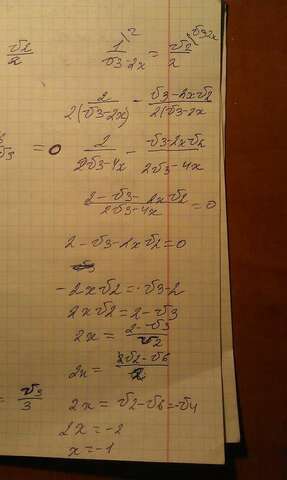 √2/2
1/√3-2x = √2/2
2/2(√3-2x) - √3-2x√2/2(√3-2x
√3 = 0
2/2√3-4x - √3-2x√2/2√3-4x
2-√3-2x√2/2√3-4x = 0
2-√3-2x√2=0
-2x√2=√3-2
2x√2=2-√3
2x= 2-√3/√2
2x= 2√2-√6/2
= √3/3
2x=√2-√6=-√4
2x=-2
x=-1